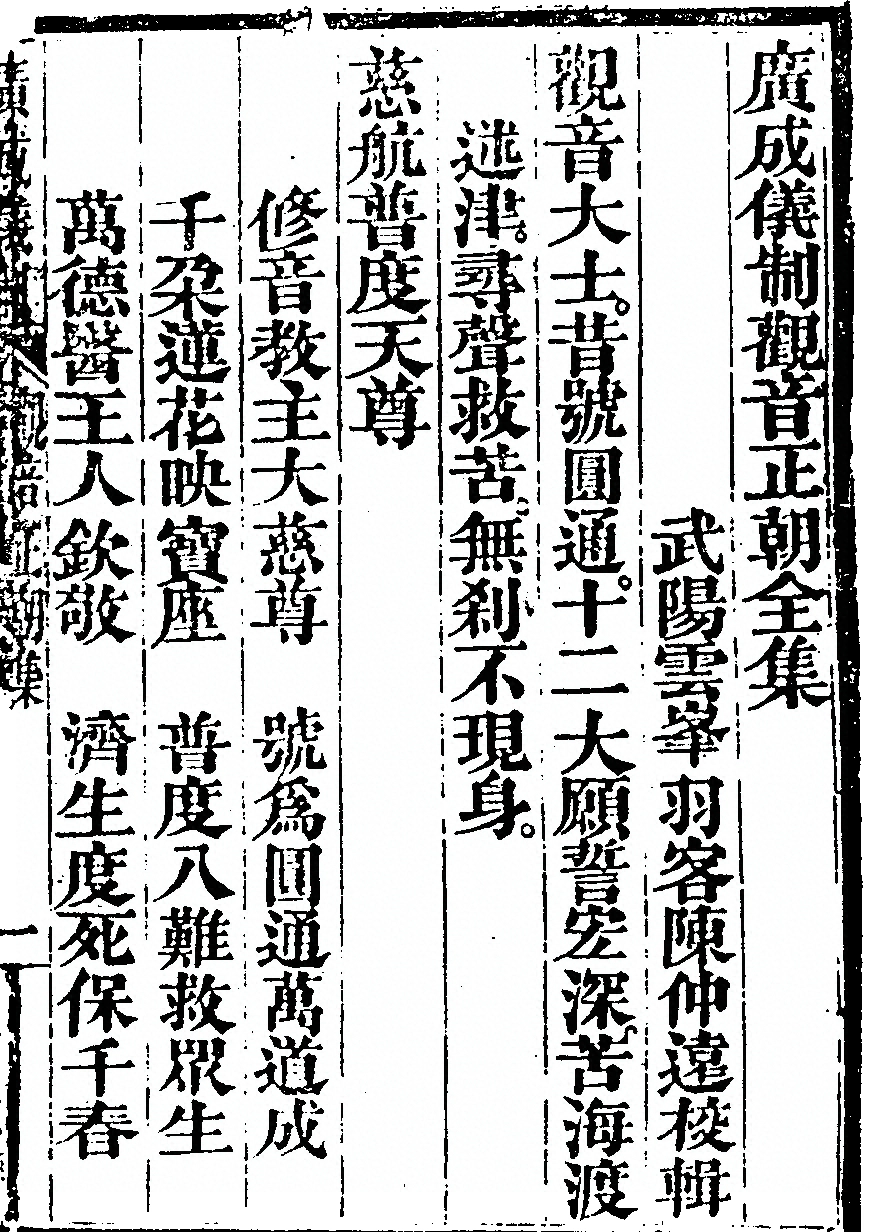 廣成儀制觀音正朝全集
武陽雲峯羽客陳仲遠校輯
觀音大士。昔號圓通。十二大願誓宏深。苦海渡
迷津。尋聲救苦。無刹不現身。
慈航普度天尊
修音教主大慈尊　號爲圓通萬道成
千朶蓮花映寶座　普度八難救眾生
萬德醫王人欽敬　濟生度死保千春
廣成儀制 觀音正朝集
一